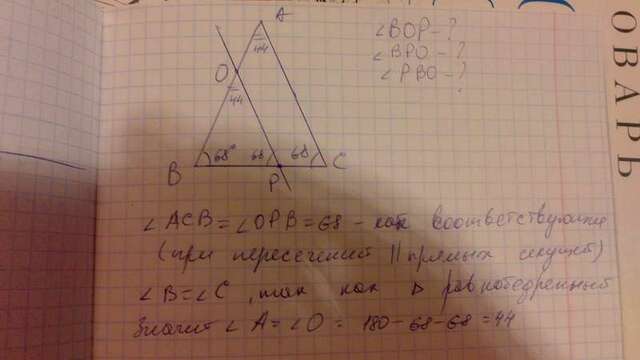 A
44
∠BOP - ?
∠BPO - ?
∠PBO - ?
O
44
B
68°
68
68
C
P
∠ACB = ∠OPB = 68 - как соответствующие
(при пересечении || прямых секущей)
∠B = ∠C, так как △ равнобедренный
Значит ∠A = ∠O = 180 - 68 - 68 = 44
ОВАРЬ